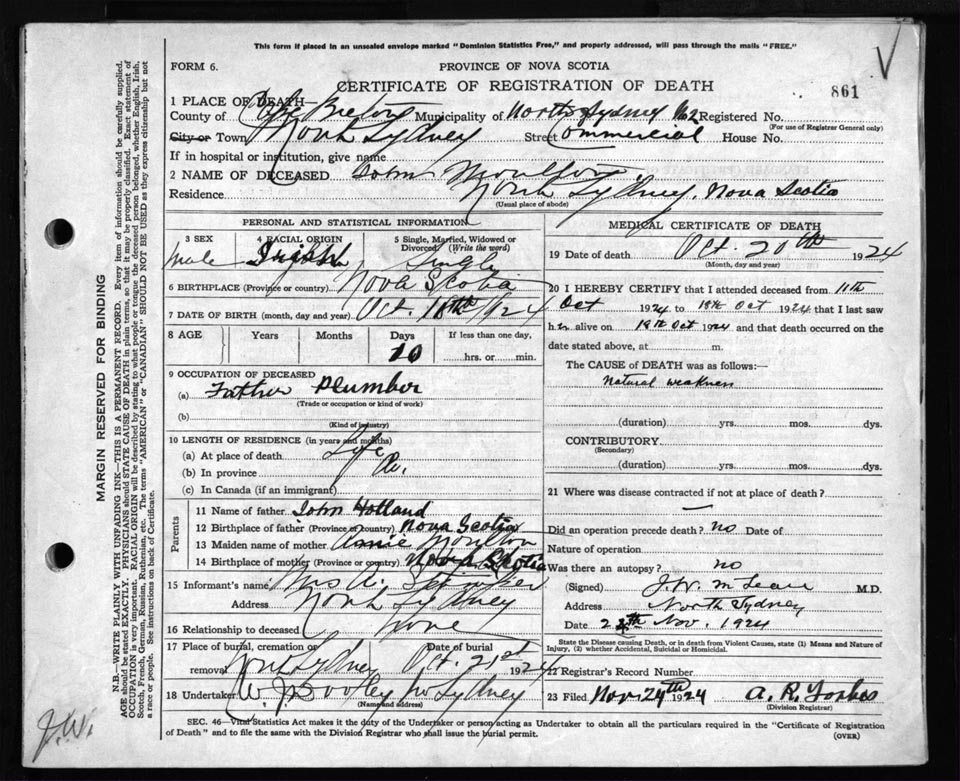 This form if placed in an unsealed envelope marked "Dominion Statistics Free," and properly addressed, will pass through the mails "FREE."
FORM 6.
PROVINCE OF NOVA SCOTIA
CERTIFICATE OF REGISTRATION OF DEATH
861
1 PLACE OF DEATH—
County of Cape Breton Municipality of North Sydney No 2 Registered No.
(For use of Registrar General only)
City or Town North Sydney Street Commercial House No.
If in hospital or institution, give name
2 NAME OF DECEASED John Moulton
Residence North Sydney, Nova Scotia
(Usual place of abode)
PERSONAL AND STATISTICAL INFORMATION
3 SEX 4 RACIAL ORIGIN 5 Single, Married, Widowed or Divorced (Write the word)
Male Irish Single
6 BIRTHPLACE (Province or country) Nova Scotia
7 DATE OF BIRTH (month, day and year) Oct. 10th 1924
8 AGE Years Months Days If less than one day,
10 hrs. or min.
9 OCCUPATION OF DECEASED
(a) Father Plumber
(Trade or occupation or kind of work)
(b)
(Kind of industry)
10 LENGTH OF RESIDENCE (in years and months)
(a) At place of death Life
(b) In province Do.
(c) In Canada (if an immigrant)
Parents
11 Name of father John Holland
12 Birthplace of father (Province or country) Nova Scotia
13 Maiden name of mother Annie Moulton
14 Birthplace of mother (Province or country) Nova Scotia
15 Informant's name Mrs A.
Address North Sydney
16 Relationship to deceased none
17 Place of burial, cremation or removal Date of burial
North Sydney Oct. 21st 1924
18 Undertaker W. J. Dooley No Sydney
(Name and address)
MEDICAL CERTIFICATE OF DEATH
19 Date of death Oct. 20th 1924
(Month, day and year)
20 I HEREBY CERTIFY that I attended deceased from 11th
Oct 1924 to 19th Oct 1924 that I last saw
him alive on 19th Oct 1924 and that death occurred on the
date stated above, at m.
The CAUSE of DEATH was as follows:—
Natural weakness
(duration) yrs. mos. dys.
CONTRIBUTORY.
(Secondary)
(duration) yrs. mos. dys.
21 Where was disease contracted if not at place of death?
Did an operation precede death? no Date of
Nature of operation
Was there an autopsy? no
(Signed) J. W. McLean M.D.
Address North Sydney
Date Nov. 1924
State the Disease causing Death, or in death from Violent Causes, state (1) Means and Nature of Injury, (2) whether Accidental, Suicidal or Homicidal.
22 Registrar's Record Number
23 Filed Nov 24th 1924 A. R. Forbes
(Division Registrar)
SEC. 46—Vital Statistics Act makes it the duty of the Undertaker or person acting as Undertaker to obtain all the particulars required in the "Certificate of Registration
of Death" and to file the same with the Division Registrar who shall issue the burial permit. (OVER)
J.W.
MARGIN RESERVED FOR BINDING
N.B.—WRITE PLAINLY WITH UNFADING INK—THIS IS A PERMANENT RECORD. Every item of information should be carefully supplied.
AGE should be stated EXACTLY. PHYSICIANS should STATE CAUSE OF DEATH in plain terms, so that it may be properly classified. Exact statement of
OCCUPATION is very important. RACIAL ORIGIN will be described by stating to what people or tongue the deceased person belonged, whether English, Irish,
Scotch, French, German, Russian, Ruthenian, etc. The terms "AMERICAN" or "CANADIAN" SHOULD NOT BE USED as they express citizenship but not
a race or people. See instructions on back of Certificate.